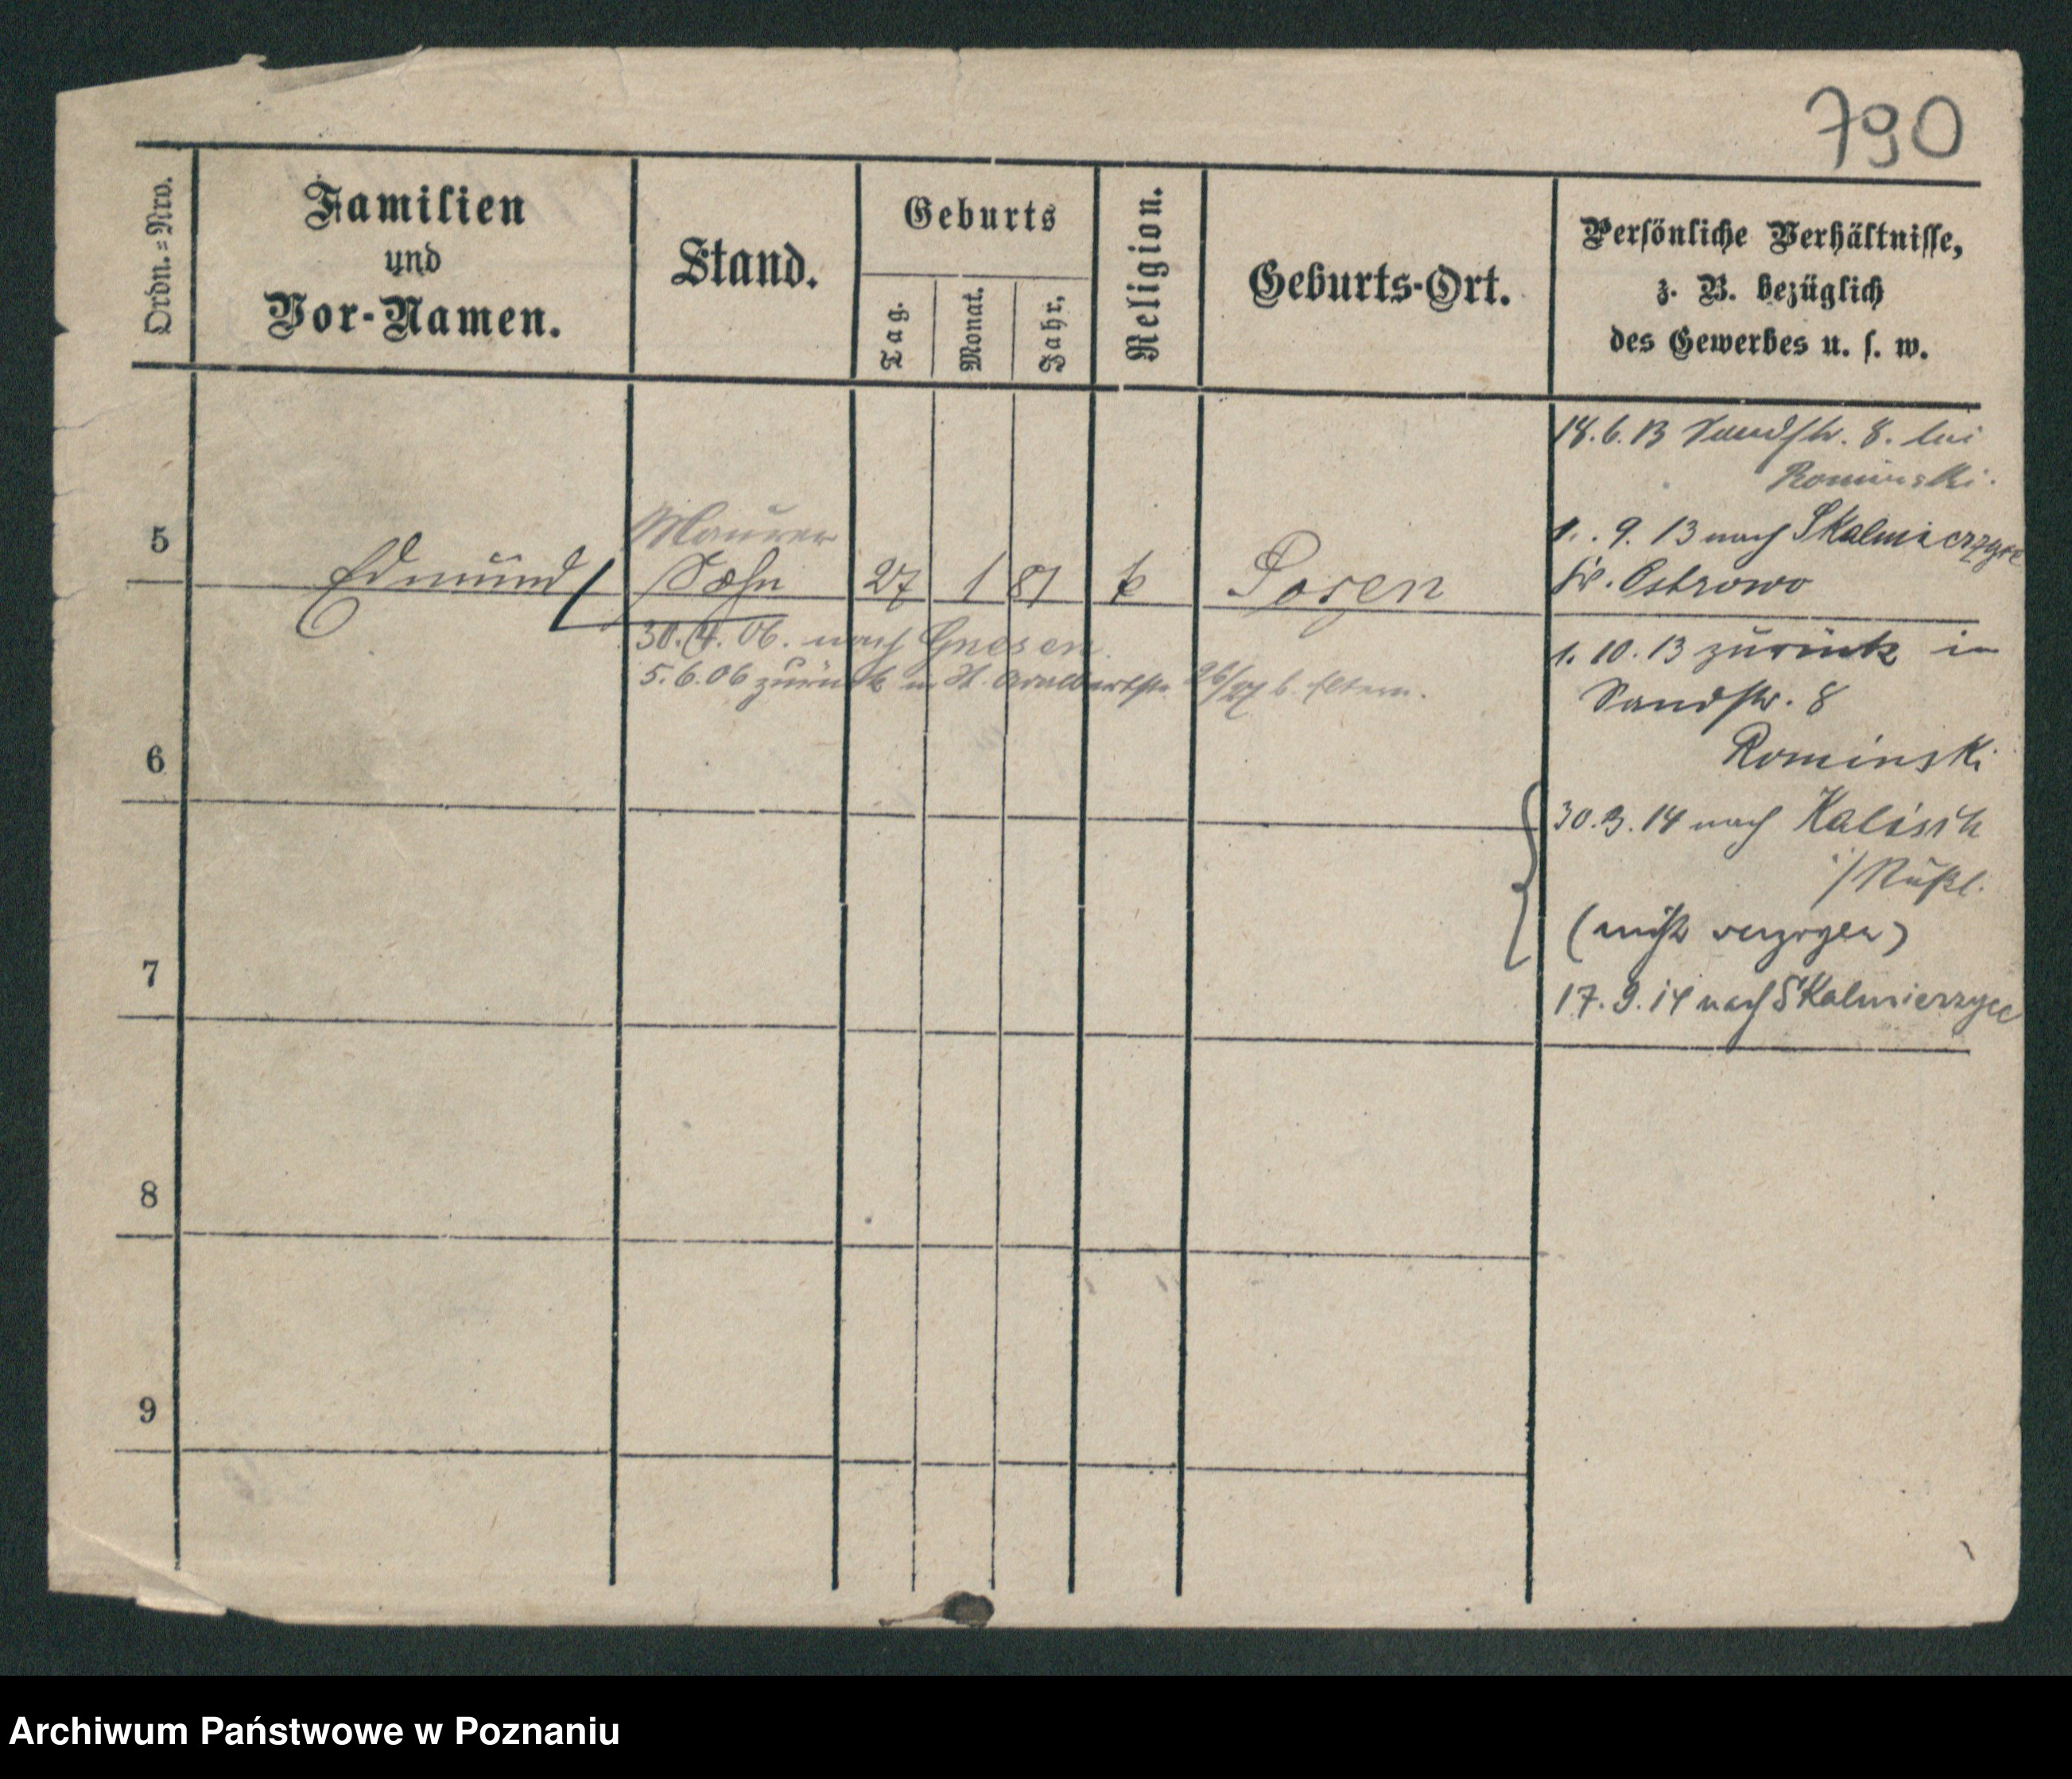 790
Ordn.=Nro.
Familien
und
Vor-Namen.
Stand.
Geburts
Tag.
Monat.
Jahr.
Religion.
Geburts-Ort.
Persönliche Verhältnisse,
z. B. bezüglich
des Gewerbes u. s. w.
5
Edmund
Maurer
Sohn
27
1
81
k
Posen
30.4.06. nach Gnesen.
5.6.06 zurück in St. Adalbertstr. 26/27 b. Eltern.
18.6.13 Sandstr. 8. bei
Rominski.
1. 9. 13 nach Skalmierzyce
Kr. Ostrowo
1. 10. 13 zurück in
Sandstr. 8
Rominski
30.3.14 nach Kalisch
i/Rußl.
(nicht verzogen)
17.9.14 nach Skalmierzyce
6
7
8
9
Archiwum Państwowe w Poznaniu